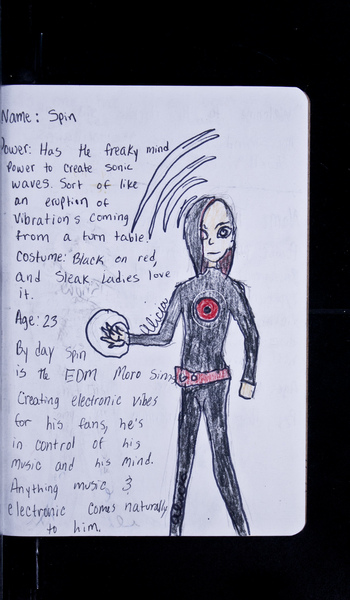 Name: Spin
Power: Has the freaky mind
Power to create sonic
waves. Sort of like
an eruption of
Vibrations coming
from a turn table.
Costume: Black on red,
and Sleak Ladies love
it.
Age: 23
Alicia
By day Spin
is the EDM Moro Sims
Creating electronic vibes
for his fans, he's
in control of his
music and his mind.
Anything music &
electronic comes naturally
to him.